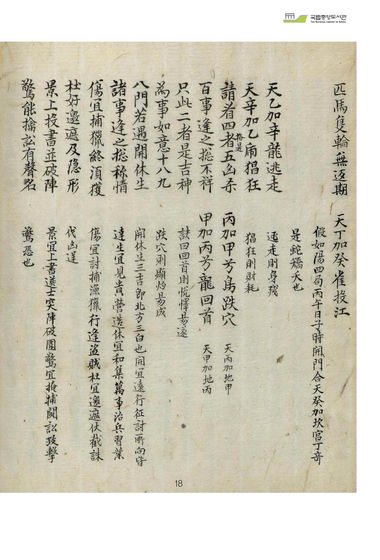 국립중앙도서관
匹馬隻輪無返期 天丁加癸雀投江
假如陽四局丙午日子時開門合天癸加坎宮丁奇
是蛇矯夭也
天乙加辛龍逃走 逃走則身殘
天辛加乙虎猖狂 猖狂則財耗
請看四者五凶杀 丙加甲兮鳥跌穴 天丙加地甲
百事逢之摠不祥 甲加丙兮龍回首 天甲加地丙
只此二者是吉神 訣曰回首則悅懌易遂
爲事如意十八九 跌穴則顯灼易成
八門若遇開休生 開休生三吉即北方三白也同宜遠行征討所向皆
諸事逢之摠稱情 達生宜見貴營造休宜和集萬事治兵習業
傷宜捕獵終須獲 傷宜討捕漁獵行逢盜賊杜宜邀遮伏截誅
杜好邀遮及隱形 伐凶逆
景上投書並破陣 景宜上書遣士突陣破圍驚宜掩捕鬪訟攻擊
驚能擒訟有聲名 驚恐也
18